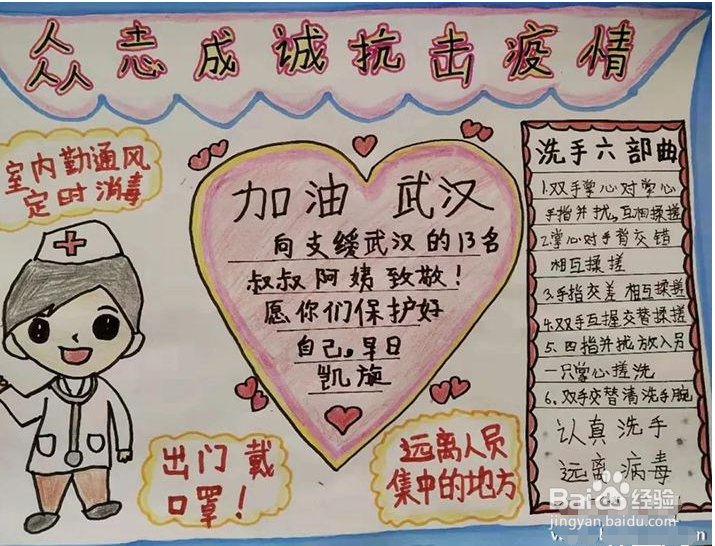 众志成诚抗击疫情
室内勤通风
定时消毒
加油 武汉
向支缓武汉的13名
叔叔阿姨致敬!
愿你们保护好
自己。早日
凯旋
洗手六部曲
1.双手掌心对掌心
手指并拢,互相揉搓
2.掌心对手背交错
相互揉搓
3.手指交差 相互揉搓
4.双手互握交替揉搓
5.四指并拢放入另
一只掌心搓洗
6.双手交替清洗手腕
认真洗手
远离病毒
出门戴
口罩!
远离人员
集中的地方
Baidu经验
jingyan.baidu.com